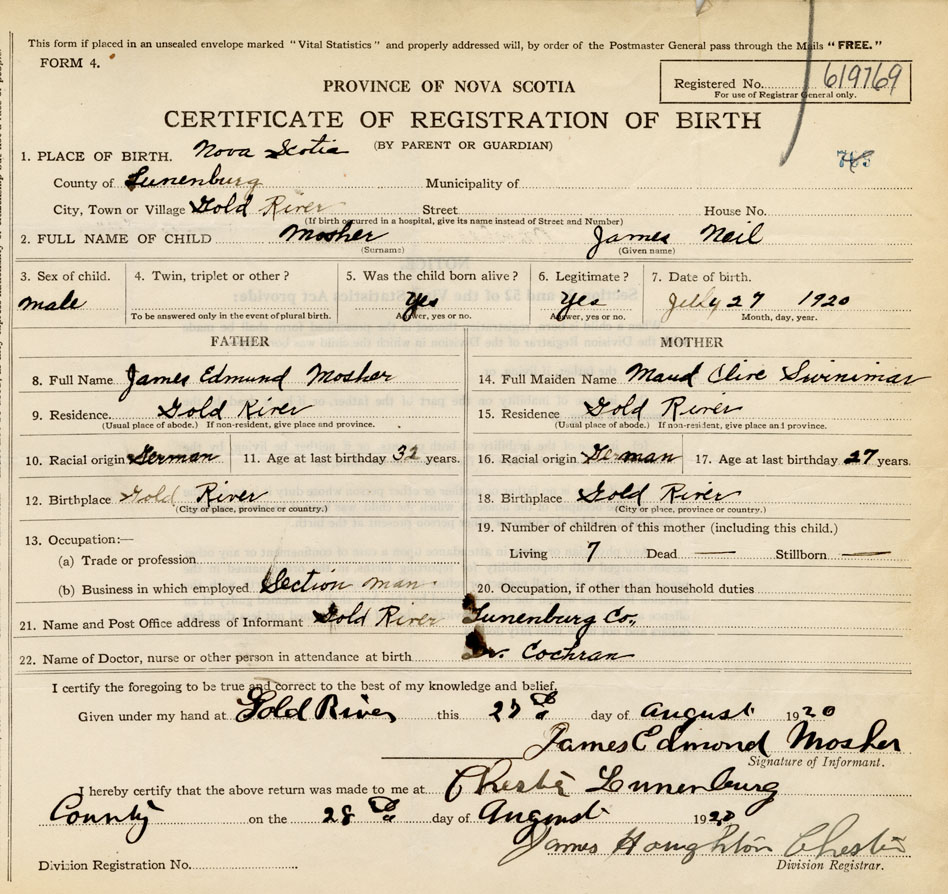 This form if placed in an unsealed envelope marked "Vital Statistics" and properly addressed will, by order of the Postmaster General pass through the Mails "FREE."
FORM 4.
Registered No. 619769
For use of Registrar General only.
PROVINCE OF NOVA SCOTIA
CERTIFICATE OF REGISTRATION OF BIRTH
(BY PARENT OR GUARDIAN)
1. PLACE OF BIRTH. Nova Scotia
County of Lunenburg Municipality of
City, Town or Village Gold River Street House No.
(If birth occurred in a hospital, give its name instead of Street and Number)
2. FULL NAME OF CHILD Mosher James Neil
(Surname) (Given name)
3. Sex of child. 4. Twin, triplet or other? 5. Was the child born alive? 6. Legitimate? 7. Date of birth.
male Yes Yes July 27 1920
To be answered only in the event of plural birth. Answer, yes or no. Answer, yes or no. Month, day, year.
FATHER MOTHER
8. Full Name James Edmund Mosher 14. Full Maiden Name Maud Olive
9. Residence. Gold River 15. Residence Gold River
(Usual place of abode.) If non-resident, give place and province. (Usual place of abode.) If non-resident, give place and province.
10. Racial origin German 11. Age at last birthday 32 years. 16. Racial origin German 17. Age at last birthday 27 years.
12. Birthplace Gold River 18. Birthplace Gold River
(City or place, province or country.) (City or place, province or country.)
19. Number of children of this mother (including this child.)
13. Occupation:—
Living 7 Dead — Stillborn —
(a) Trade or profession
(b) Business in which employed Section man 20. Occupation, if other than household duties
21. Name and Post Office address of Informant Gold River Lunenburg Co.,
22. Name of Doctor, nurse or other person in attendance at birth Dr. Cochran
I certify the foregoing to be true and correct to the best of my knowledge and belief.
Given under my hand at Gold River this 27th day of August 1920
James Edmond Mosher
Signature of Informant.
I hereby certify that the above return was made to me at Chester Lunenburg
County on the 28th day of August 1920
James Houghton Chester
Division Registration No. Division Registrar.